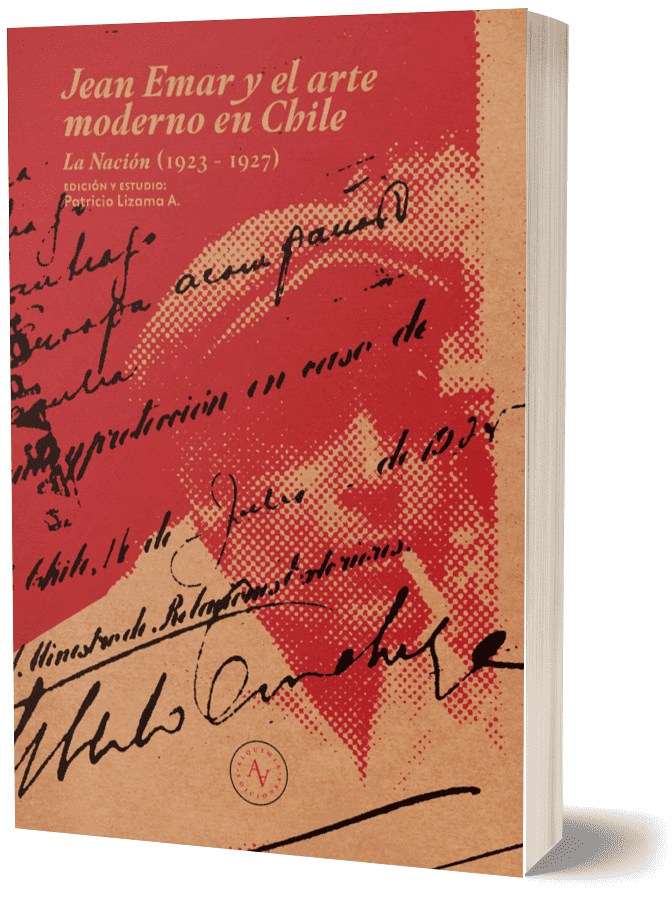 Jean Emar y el arte
moderno en Chile
La Nación (1923 - 1927)
EDICIÓN Y ESTUDIO:
Patricio Lizama A.
Europa acompañado
y protección en caso de
Chile, 16 de Julio de
Ministro de Relaciones Exteriores.
ALQUIMIA
EDICIONES